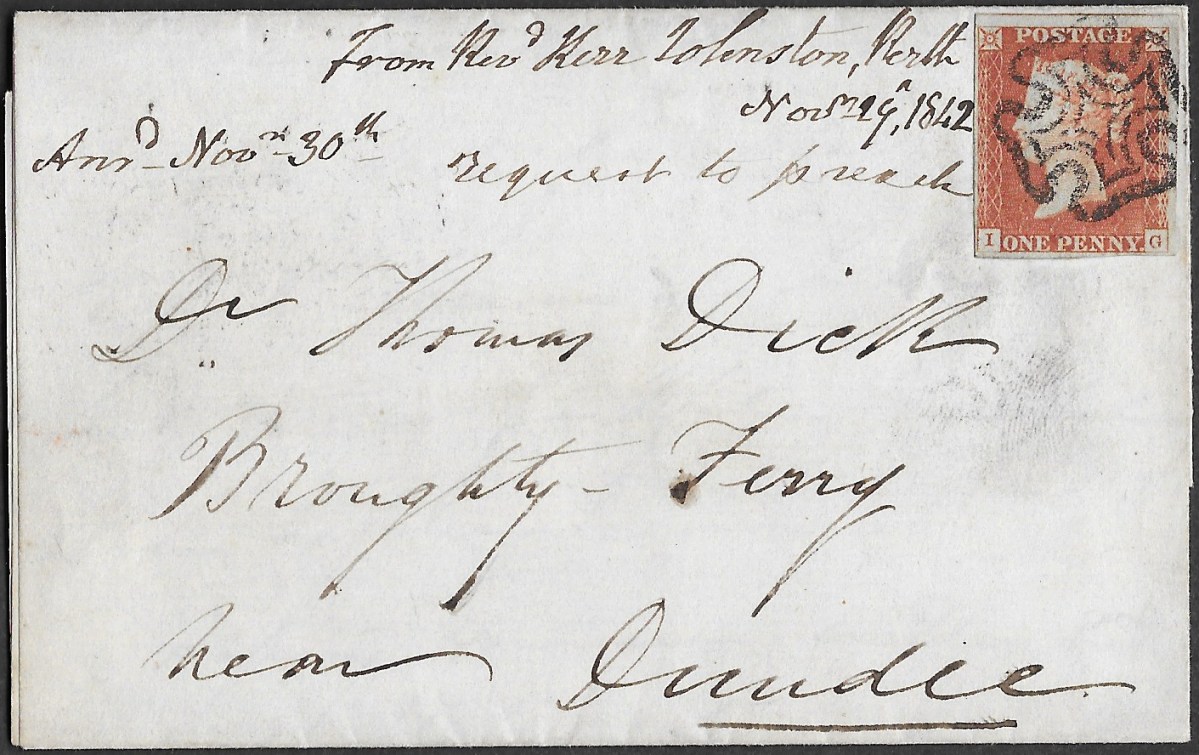 From Revd Kerr Johnston, Perth
Novr 29, 1842
Ansd Novr 30th
request to preach
POSTAGE
I ONE PENNY G
Dr Thomas Dick
Broughty-Ferry
near Dundee